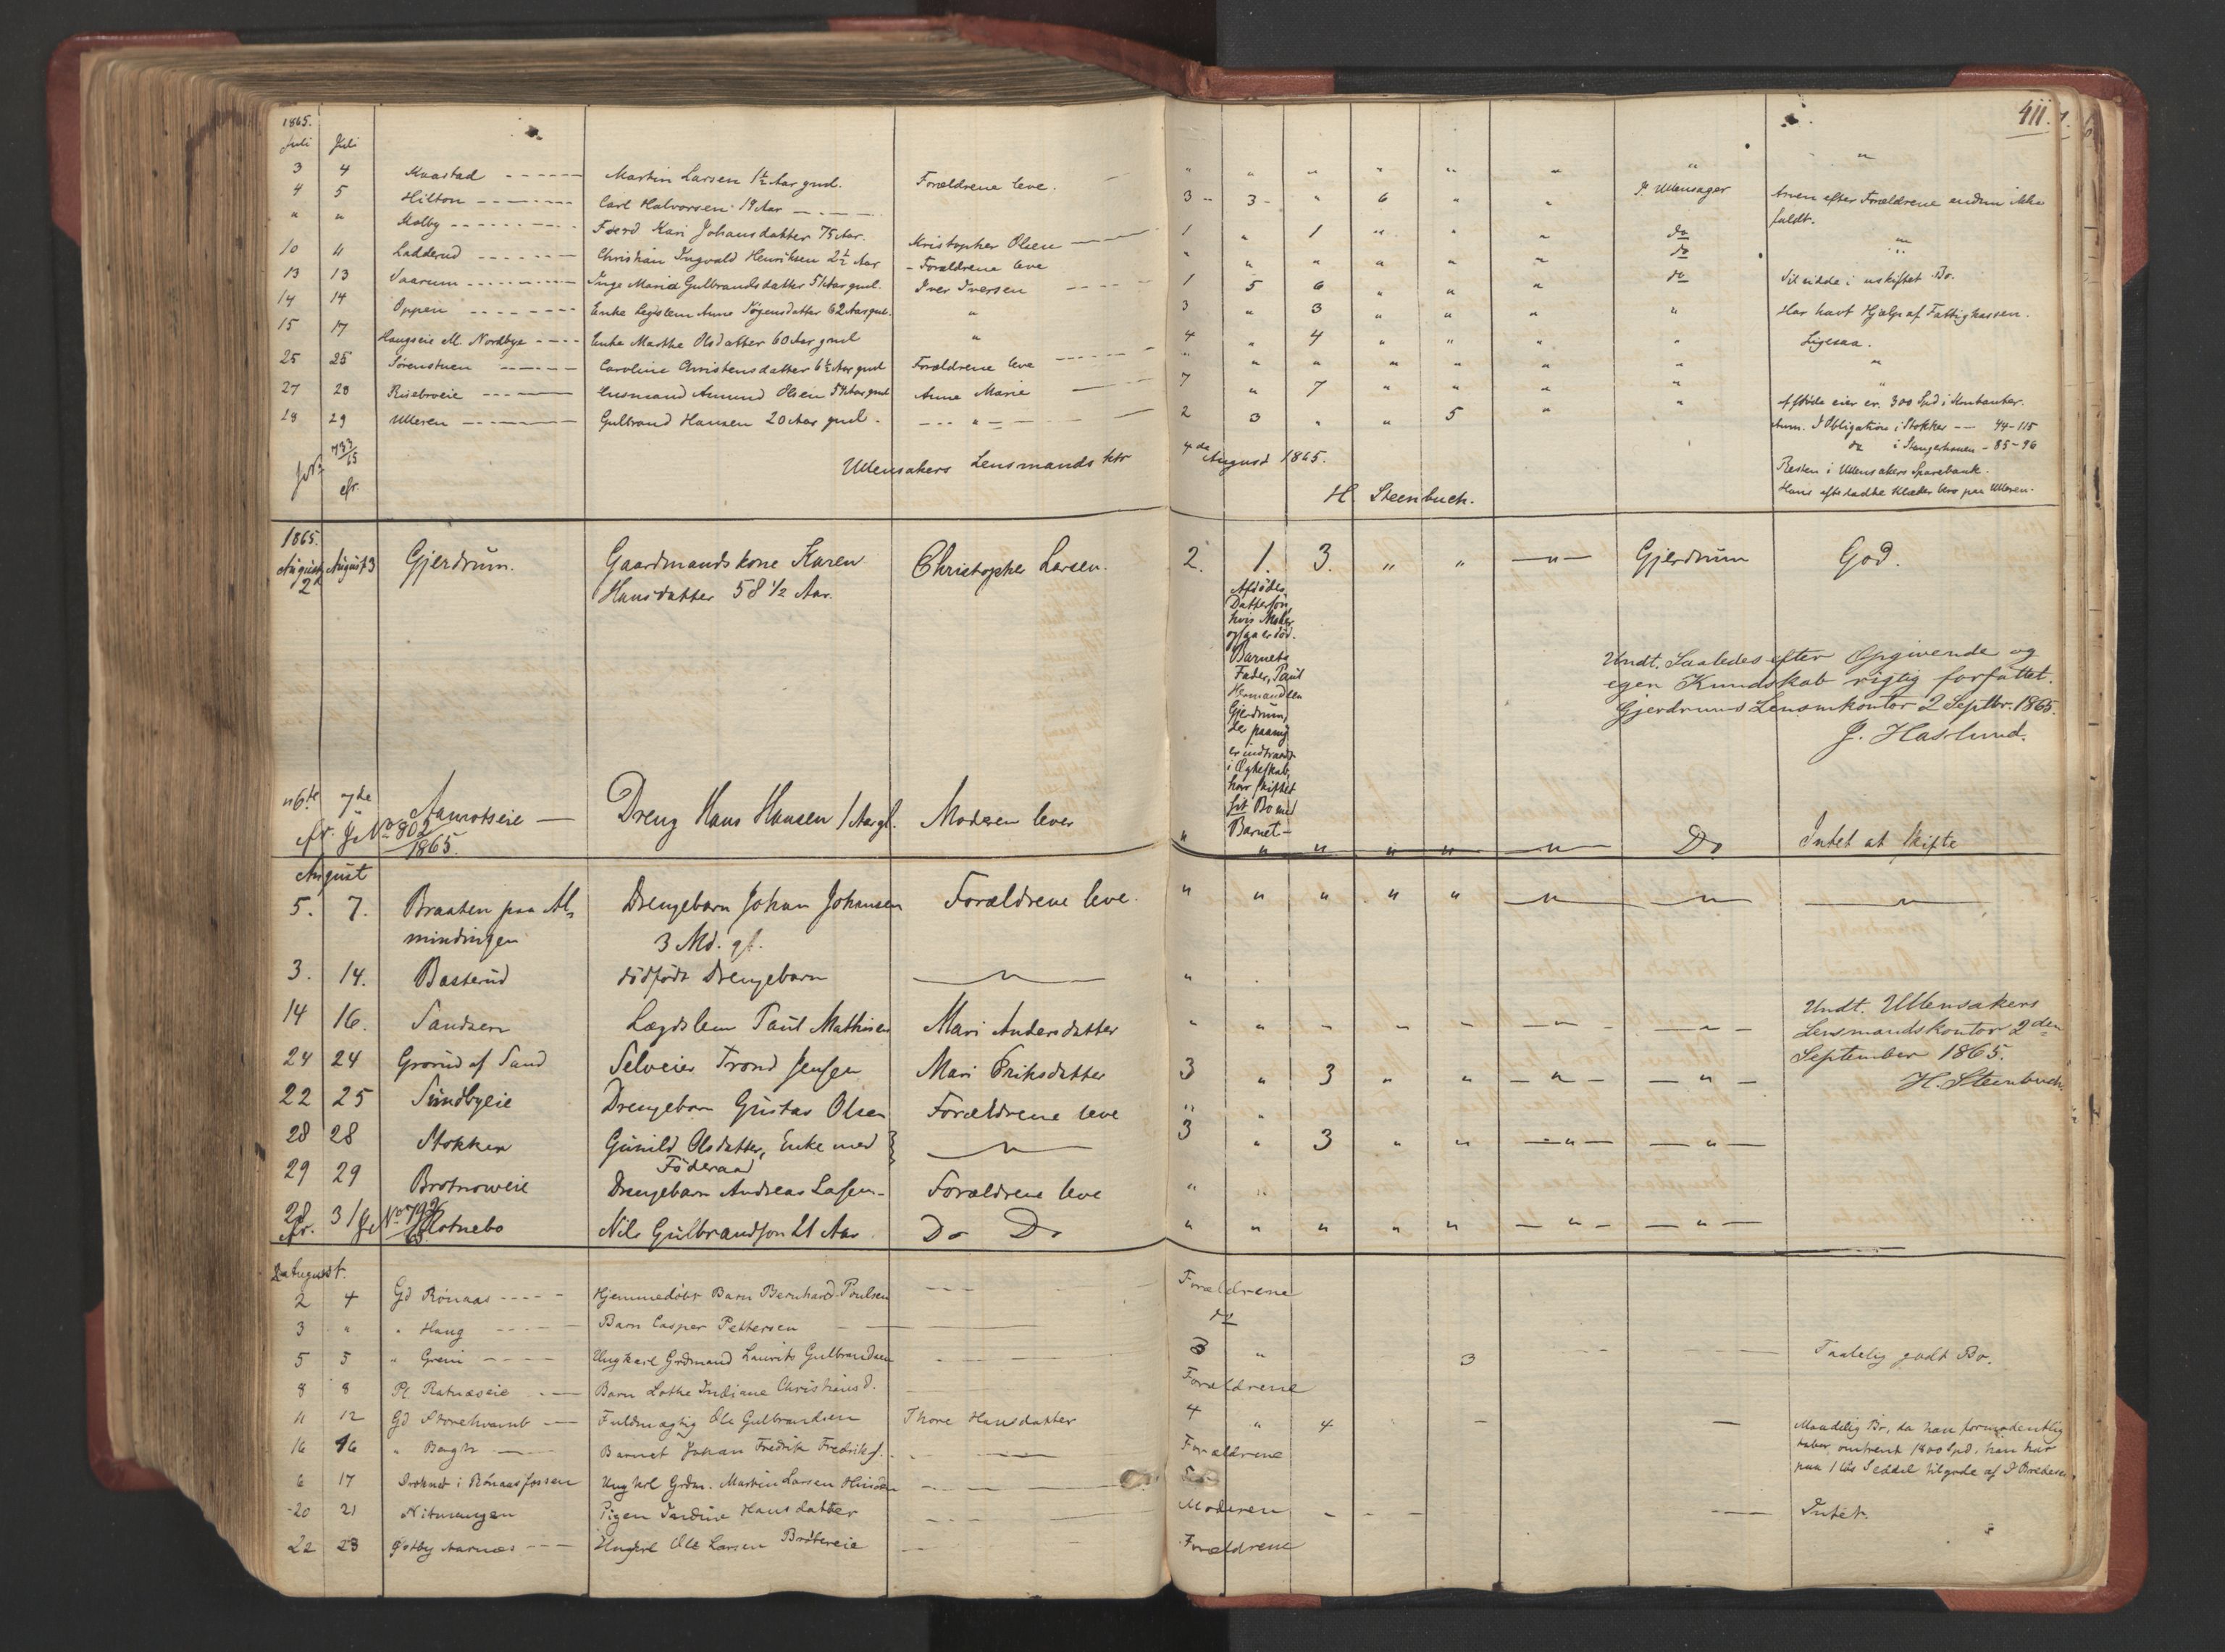 411.
1865.
Juli Juli
3 4 Kvastad Martin Larsen 1½ Aar gml. Forældrene leve. " " " " " " " "
4 5 Hilton Carl Halvorsen 19 Aar 3 3 " 6 " " I Ullensager Arven efter Forældrene endnu ikke
faldt.
" " Molby Føerd Kari Johansdatter 75 Aar. Kristopher Olsen 1 " 1 " " " do "
10 11 Ladderud Christian Ingvald Henriksen 2½ Aar Forældrene leve " " " " " " do "
13 13 Vaarum Inge Maria Gulbrandsdatter 51 Aar gml. Iver Iversen 1 5 6 " " " do Sit sidde i uskiftet Bo.
14 14 Oppen Enke Legslem Anne Jögensdatter 62 Aar gml. " 3 " 3 " " " " Har havt Hjælp af Fattigkassen.
15 17 Haugseie M. Nordbye Enke Marthe Olsdatter 60 Aar gml " 4 " 4 " " " " Ligesaa.
25 25 Sörenstuen Caroline Christensdatter 6½ Aar gml Forældrene leve " " " " " " " "
27 28 Risebroeie Husmand Amund Olsen Aar gml Anne Marie 7 " 7 " " " " "
28 29 Ulleren Gulbrand Hansen 20 Aar gml. " 2 3 " " 5 " " Afdøde eier er. 300 Spd i Kontanter.
Anm. I Obligation i Stokker 44-115
do i Stangerhauen - 85-96
Resten i Ullensakers Sparebank.
Hans efterladte Klæder bero paa Ulleren.
Jr. 733/65 efr.
Ullensakers Lensmands ktr 4de August 1865.
H. Steenbuch.
1865.
August 2 August 3 Gjerdrum. Gaardmandskone Karen Christopher Larsen. 2. 1. 3. " " " Gjerdrum God.
Hansdatter 58 ½ Aar.
Afdödes
Dattersön,
hvis Moder
ogsaa er död.
Barnets
Fader, Paul
Hermandsen
Gjerdrum,
der paany
er indtraadt
i Ægteskab,
har skiftet
sit Bo med
Barnet -
Undt. Saaledes efter Opgivende og
egen Kundskab rigtig forfattet.
Gjerdrums Lensmkontor 2 Septbr. 1865.
J. Haslund.
" 6te 7de Aamotseie Dreng Hans Hansen 1 Aar gl. Moderen lever " " " " " " Do Intet at skifte
cfr. J No 802/1865.
August
5. 7. Braaten paa Al- Drengebarn Johan Johansen Forældrene leve. " " " " " " " "
mindingen 3 Md. gl.
3. 14. Basterud dödfödt Drengebarn " "
14 16. Sandsern Lægdslem Paul Mathisen Mari Andersdatter " " " " " " "
24 24 Grorud af Sand Selveier Trond Jensen Mari Eriksdatter 3 " 3 " " " "
22 25 Sundbyeie Drengebarn Gustav Olsen Forældrene leve " "
28 28 Stokker Gunild Olsdatter, Enke med " 3 " 3 " " " "
Föderaad
29 29 Brotnoweie Drengebarn Andreas Larsen Forældrene leve " "
28 31 Flotnebo Nils Gulbrandson 21 Aar Do Do " " " " " " "
cfr. J No 792/65
Undt. Ullensakers
Lensmandskontor 2den
September 1865.
H. Steenbuch
August.
2 4 Gd Rönaas Hjemmedöbt Barn Bernhard Poulsen Forældrene
3 " " Haug Barn Casper Pettersen do
5 5 " Greni Ungkarl Grdmand Laurits Gulbrandsen 3 " 3 Taalelig godt Bo.
8 8 Pl. Ratnæseie Barn Lothe Indiane Christiansd. Forældrene
11 12 Gd Storehvamb Fuldmægtig Ole Gulbrandsen Thore Hansdatter 4 " 4 Maadelig Bo, da han formodentlig
taber omtrent 1800 Spd, han har
paa 1 løs Seddel tilgode af P Bredesen.
16 16 " Bergh Barnet Johan Fredrik Fredriks. Forældrene
6 17 Druknet i Rönaasfossen Ungkrl Grdm. Martin Larsen
20 21 Nitmangen Pigen Jardine Hansdatter Moderen Intet.
22 23 Østby Aarnæs Ungkrl Ole Larsen Bröttereie Forældrene